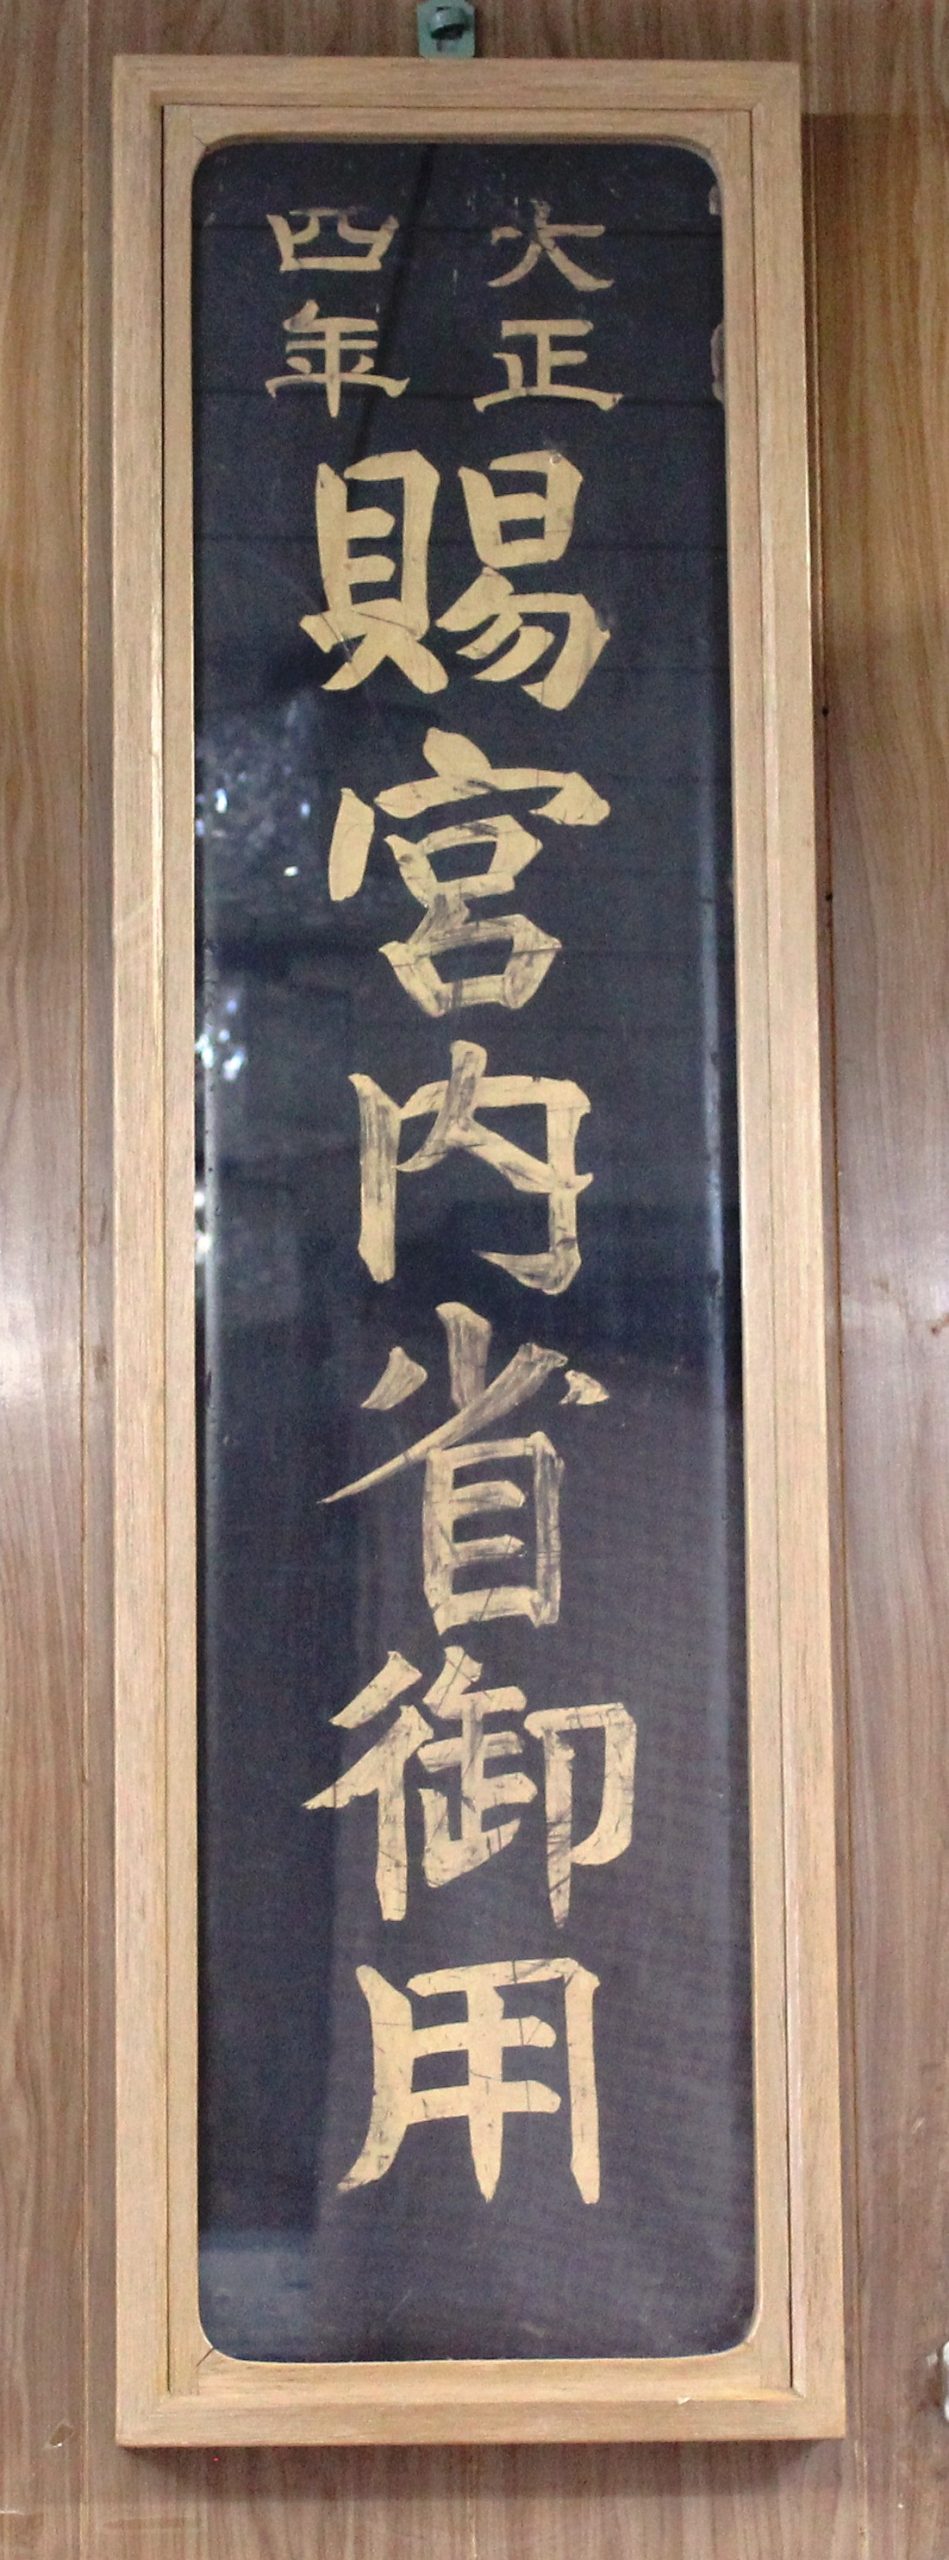 大正
四年
賜宮内省御用